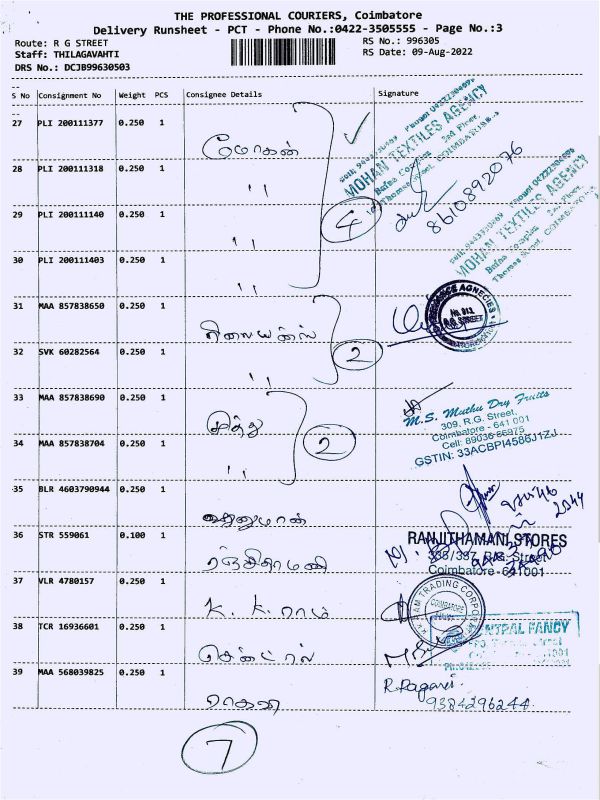 THE PROFESSIONAL COURIERS, Coimbatore
Delivery Runsheet - PCT - Phone No.:0422-3505555 - Page No.:3
Route: R G STREET
RS No.: 996305
Staff: THILAGAVAHTI
RS Date: 09-Aug-2022
DRS No.: DCJB99630503
S No Consignment No Weight PCS Consignee Details Signature
27 PLI 200111377 0.250 1
மோகன்
MOHAN TEXTILES AGENCY
28 PLI 200111318 0.250 1
"
8610892076
29 PLI 200111140 0.250 1
"
4
MOHAN TEXTILES AGENCY
30 PLI 200111403 0.250 1
"
31 MAA 857838650 0.250 1
ரிலையன்ஸ்
2
32 SVK 60282564 0.250 1
"
33 MAA 857838690 0.250 1
முத்து
M.S. Muthu Dry Fruits
309, R.G. Street,
Coimbatore - 641 001
Cell: 89036 66975
GSTIN: 33ACBPI4586J1ZJ
2
34 MAA 857838704 0.250 1
"
35 BLR 4603790944 0.250 1
ஹனுமான்
36 STR 559061 0.100 1
ரஞ்சிதாமணி
RANJITHAMANI STORES
Coimbatore-641001
37 VLR 4780157 0.250 1
K. K. ராம்
38 TCR 16936601 0.250 1
சென்ட்ரல்
CENTRAL FANCY
39 MAA 568039825 0.250 1
ராகவி
9384296244
7